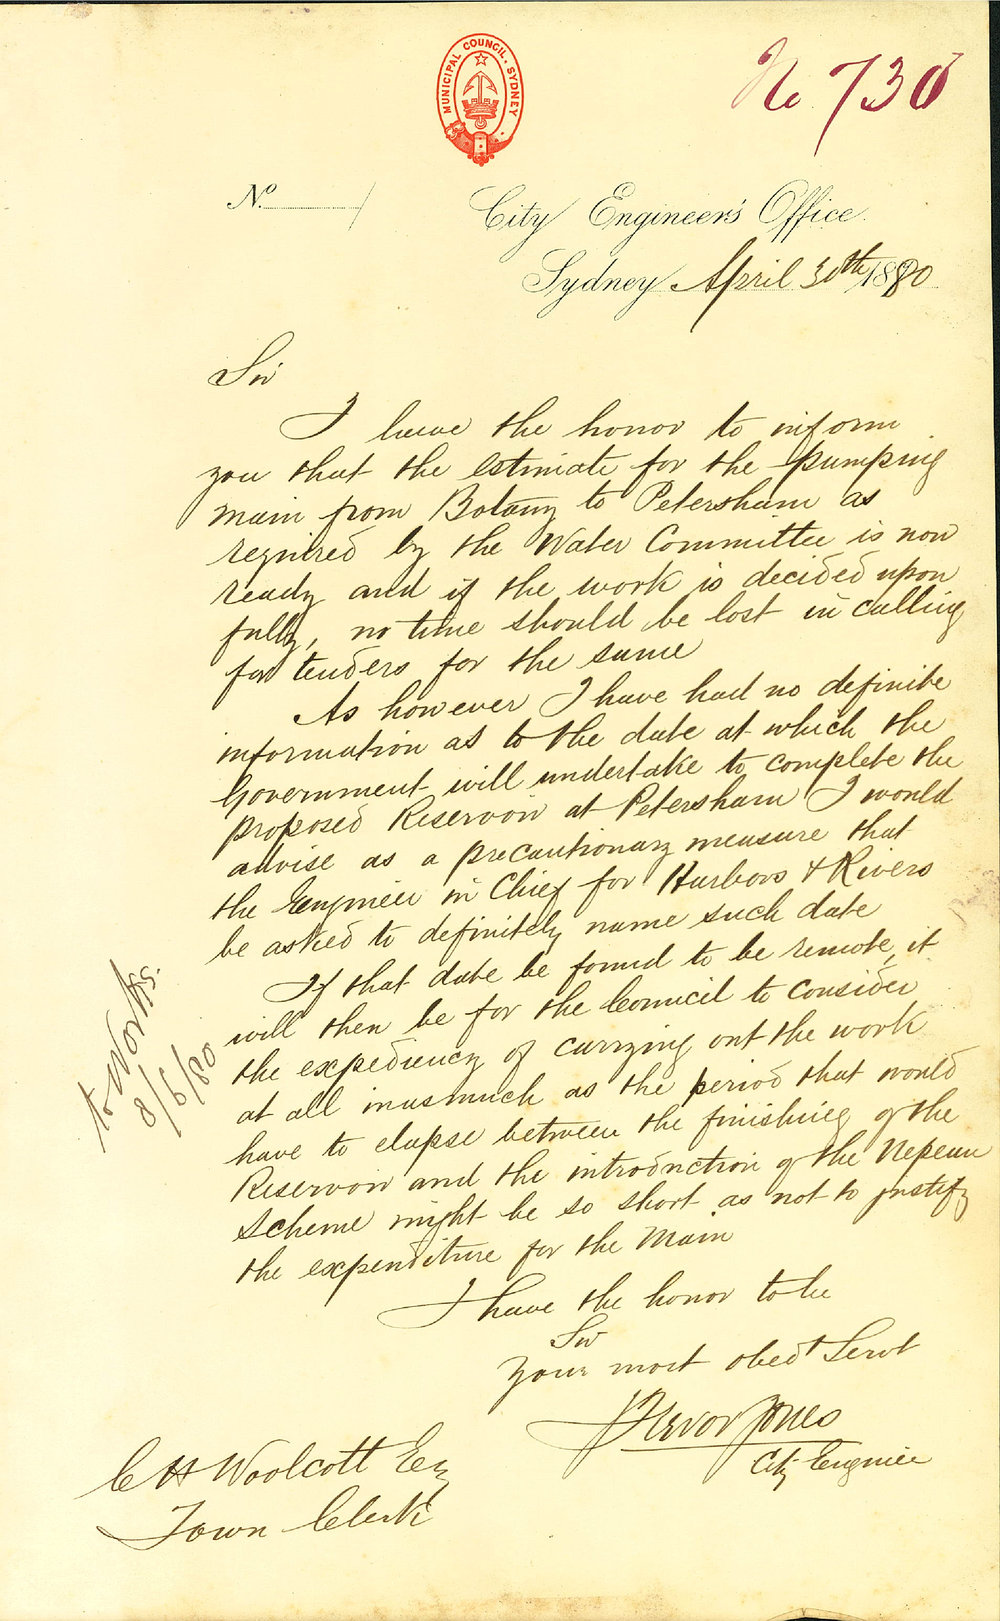 MUNICIPAL COUNCIL. SYDNEY
No 730
No.
City Engineer's Office.
Sydney April 30th 1880
Sir
I have the honor to inform
you that the estimate for the pumping
main from Botany to Petersham as
required by the Water Committee is now
ready and if the work is decided upon
fully, no time should be lost in calling
for tenders for the same
As however I have had no definite
information as to the date at which the
Government will undertake to complete the
proposed Reservoir at Petersham I would
advise as a precautionary measure that
the Engineer in Chief for Harbors & Rivers
be asked to definitely name such date
If that date be found to be remote, it
will then be for the Council to consider
the expediency of carrying out the work
at all inasmuch as the period that would
have to elapse between the finishing of the
Reservoir and the introduction of the Nepean
Scheme might be so short as not to justify
the expenditure for the Main
I have the honor to be
Sir
Your most obedt Servt
Trevor Jones
City Engineer
C H Woolcott Esq
Town Clerk
to Works.
8/6/80